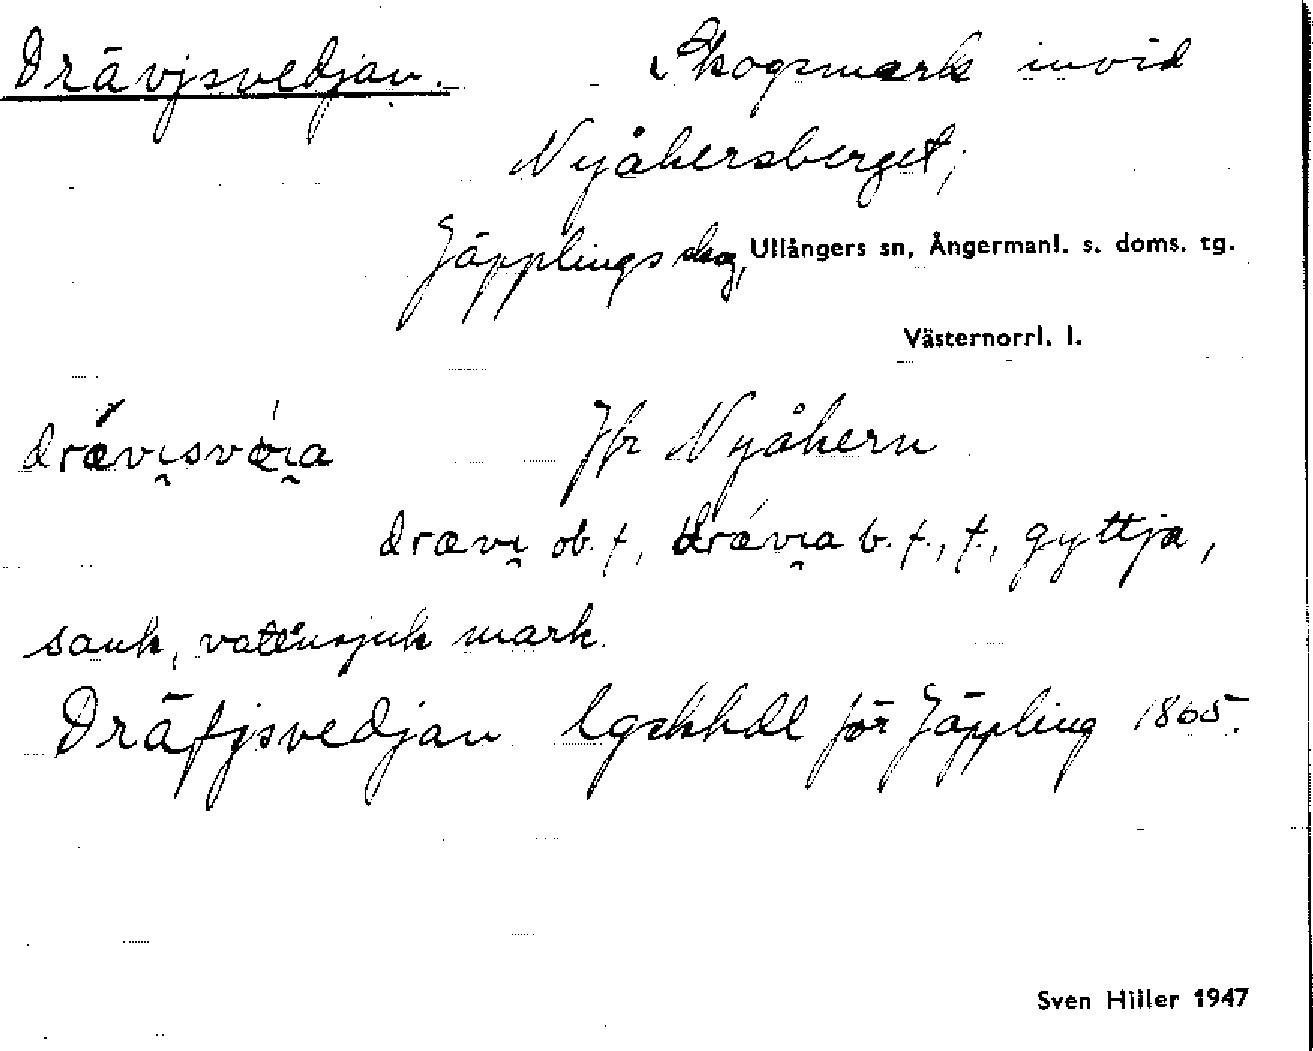 Drävjsvedjan. Skogsmark invid
Nyåkersberget,
Jäpplings skog, Ullångers sn, Ångermanl. s. doms. tg.
Västernorrl. l.
drǽvi̯svǽi̯a Jfr Nyåkern
drævi̯ ob. f., drǽvi̯a b. f., f., gyttja,
sank, vattensjuk mark.
Dräfjsvedjan lgskhdl för Jäppling 1865.
Sven Hiller 1947